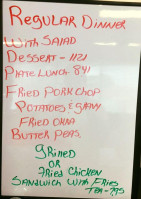 Regular Dinner
With Salad
Dessert - 1121
Plate Lunch 841
Fried Pork Chop
Potatoes & Gravy
Fried Okra
Butter Peas
Grilled
or
Fried Chicken
Sandwich with Fries
Tea - 795